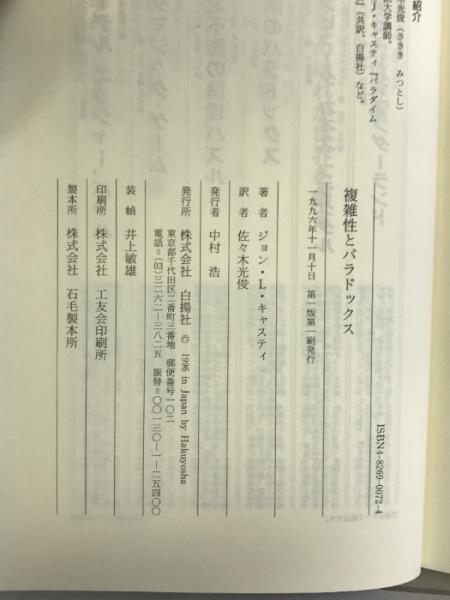 紹介
木光俊（ささき　みつとし）
大学講師。
J・キャスティ『パラダイム
』（共訳、白揚社）など。
ISBN4-8269-0072-4
複雑性とパラドックス
一九九六年十一月十日　第一版第一刷発行
著者　ジョン・L・キャスティ
訳者　佐々木光俊
発行者　中村　浩
発行所　株式会社　白揚社　© 1996 in Japan by Hakuyosha
東京都千代田区二番町三番地　郵便番号一〇二
電話＝(03)三二六二―三八二五　振替＝〇〇一三〇―一―二五四〇〇
装幀　井上敏雄
印刷所　株式会社　工友会印刷所
製本所　株式会社　石毛製本所